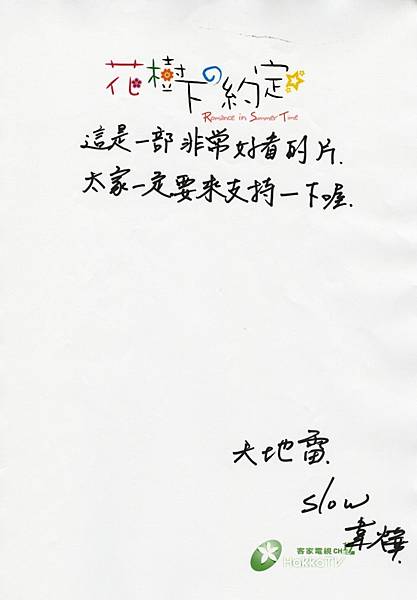 花樹下の約定
Romance in Summer Time
這是一部非常好看的片.
大家一定要來支持一下喔.
大地雷.
slow
韋
客家電視 CH17
HakkaTV